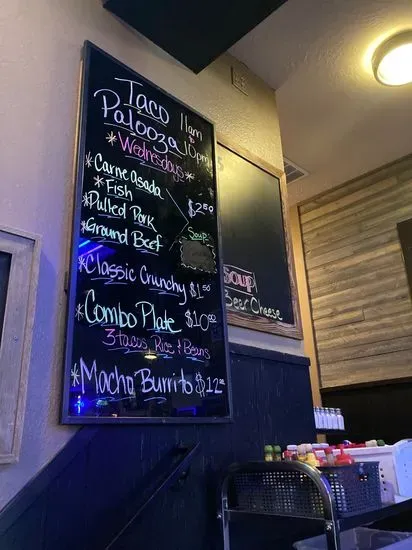 Taco
Palooza
11am
to
10pm
*Wednesdays*
*Carne Asada
*Fish
*Pulled Pork
*Ground Beef
$2.50
Soup
*Classic Crunchy $1.50
Combo Plate $10.00
3 tacos, Rice & Beans
*Macho Burrito $12.00
Soup
Beer Cheese